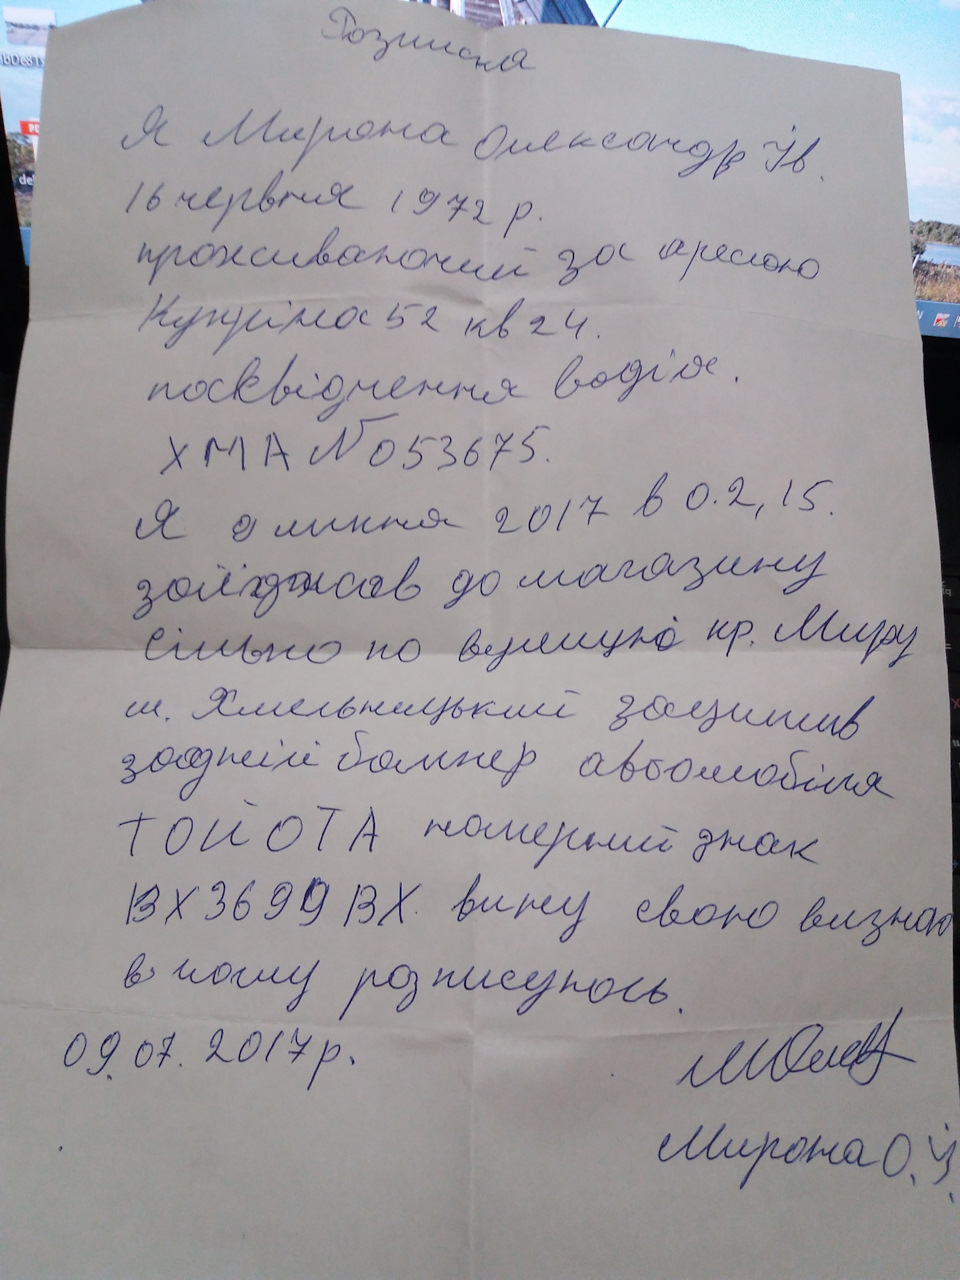 Розписка
Я Мирона Олександр Ів.
16 червня 1972 р.
проживаючий за аресою
Купріна 52 кв 24.
посквідчення водія.
ХМА №053675.
Я 9 липня 2017 в 0.2,15.
заїїджав до магазину
Сільпо по вулицуі пр. Миру
м. Хмельницький заципив
задній бампер автомобіля
ТОЙОТА номерний знак
ВХ3699ВХ. вину свою визнаю
в чому розписуюсь.
09.07.2017р.
Мирона О.І.